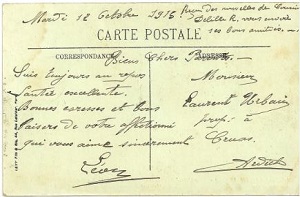 Mardi 12 Octobre 1915
Rien des nouvelles de
Delille R. vous envoie
ses bons amitiés
CARTE POSTALE
CORRESPONDANCE
ADRESSE
Biens Chers Parents
Suis toujours au repos
Santée excellente.
Bonnes caresses et bons
baisers de votre affectionné
qui vous aime sincèrement
Léon
Monsieur
Laurent Urbain
propr. à
Cruas.
Ardèche